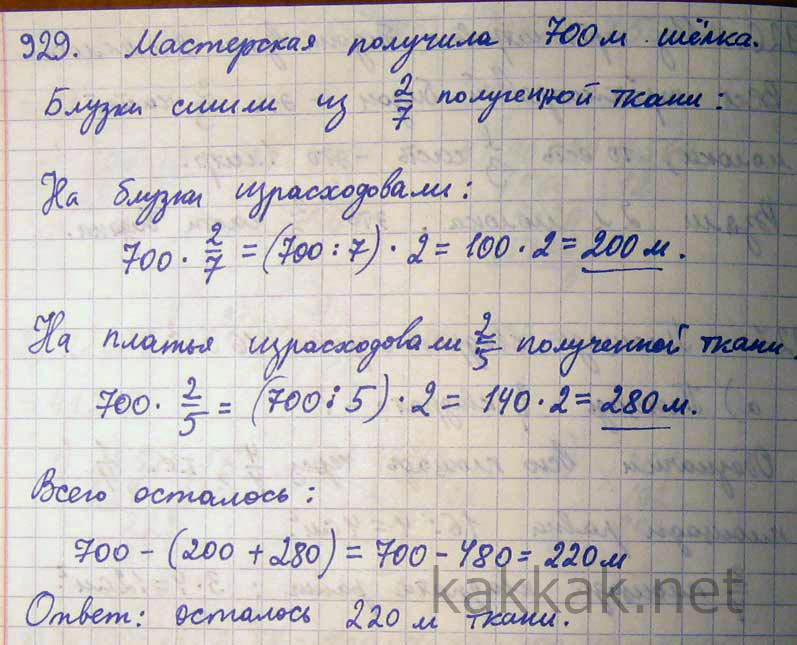 929. Мастерская получила 700 м шёлка.
Блузки сшили из 2/7 полученной ткани:
На блузки израсходовали:
700 · 2/7 = (700 : 7) · 2 = 100 · 2 = 200 м.
На платья израсходовали 2/5 полученной ткани.
700 · 2/5 = (700 : 5) · 2 = 140 · 2 = 280 м.
Всего осталось:
700 - (200 + 280) = 700 - 480 = 220 м
Ответ: осталось 220 м ткани.
kakkak.net